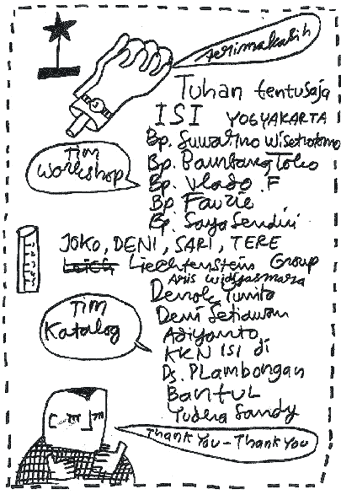 Terimakasih
Tuhan tentusaja
ISI YOGYAKARTA
Tim Workshop
Bp. Suwarno Wisetrotomo
Bp. Bambang Toko
Bp. Vlado .F
Bp. Fauzie
Bp. Saya Sendiri
JOKO, DENI, SARI, TERE
Liechtenstein Group
Anis Widyasmara
Tim Katalog
Denok Yunita
Deni Setiawan
Adiyanto
KKN ISI di
Ds. PLambongan
BantuL
Yudha Sandy
Thank You - Thank You